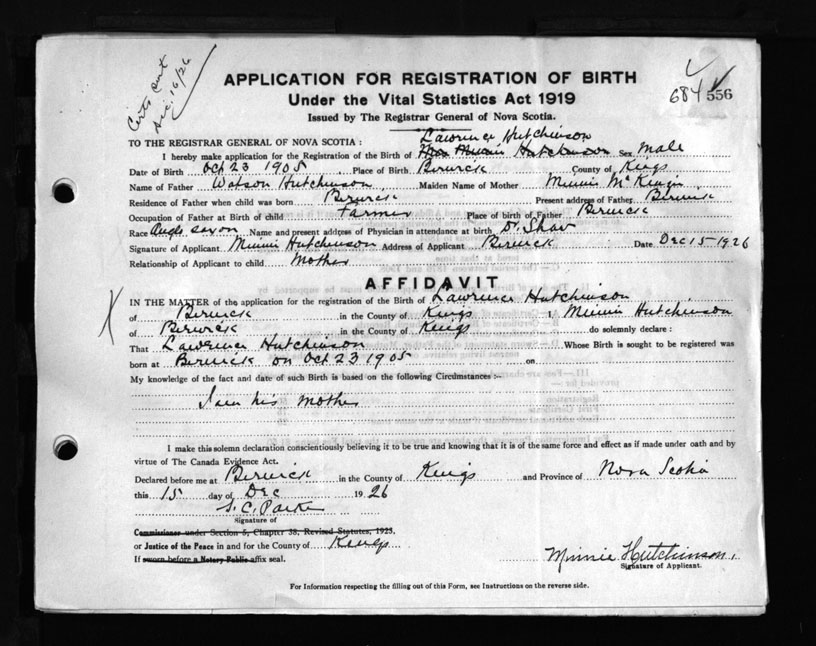 Certs sent
Dec. 16/26
684 556
APPLICATION FOR REGISTRATION OF BIRTH
Under the Vital Statistics Act 1919
Issued by The Registrar General of Nova Scotia.
Lawrence Hutchinson
TO THE REGISTRAR GENERAL OF NOVA SCOTIA :
I hereby make application for the Registration of the Birth of Hutchinson Sex Male
Date of Birth Oct 23 1905 Place of Birth Berwick County of Kings
Name of Father Watson Hutchinson Maiden Name of Mother Minnie
Residence of Father when child was born Berwick Present address of Father Berwick
Occupation of Father at Birth of child Farmer Place of birth of Father Berwick
Race Anglo saxon Name and present address of Physician in attendance at birth Dr. Shaw
Signature of Applicant Minnie Hutchinson Address of Applicant Berwick Date Dec 15 1926
Relationship of Applicant to child Mother
AFFIDAVIT
IN THE MATTER of the application for the registration of the Birth of Lawrence Hutchinson
of Berwick in the County of Kings I, Minnie Hutchinson
of Berwick in the County of Kings do solemnly declare :
That Lawrence Hutchinson Whose Birth is sought to be registered was
born at Berwick on Oct 23 1905 on
My knowledge of the fact and date of such Birth is based on the following Circumstances :-
I am his Mother
I make this solemn declaration conscientiously believing it to be true and knowing that it is of the same force and effect as if made under oath and by
virtue of The Canada Evidence Act.
Declared before me at Berwick in the County of Kings and Province of Nova Scotia
this 15 day of Dec 1926
S. C. Parker
Signature of
Commissioner under Section 5, Chapter 38, Revised Statutes, 1923.
or Justice of the Peace in and for the County of Kings
If sworn before a Notary Public affix seal.
Minnie Hutchinson
Signature of Applicant.
For Information respecting the filling out of this Form, see Instructions on the reverse side.